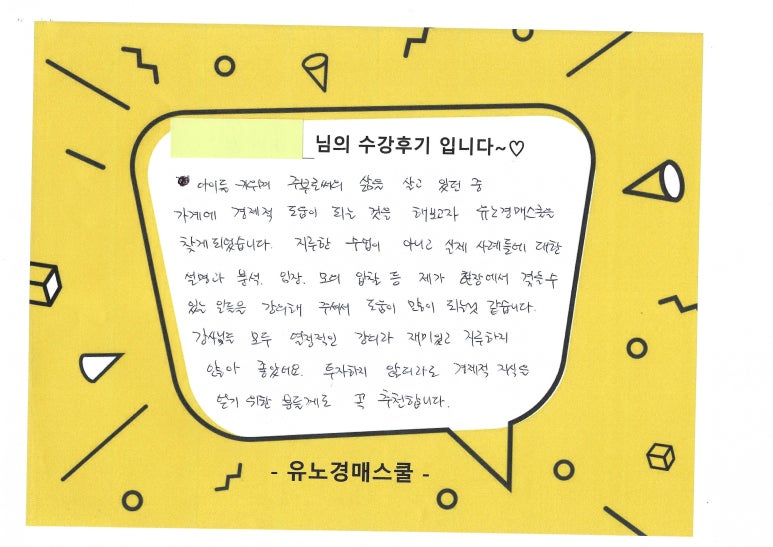 님의 수강후기 입니다~♡
아이들 키우며 주부로써의 삶을 살고 있던 중
가계에 경제적 도움이 되는 것을 해보고자 유노경매스쿨을
찾게 되었습니다. 지루한 수업이 아니고 실제 사례들에 대한
설명과 분석, 임장, 모의 입찰 등 제가 현장에서 겪을수
있는 일들을 강의해 주셔서 도움이 많이 되는것 같습니다.
강사님들 모두 열정적인 강의라 재미있고 지루하지
않아 좋았어요. 투자하지 않더라도 경제적 지식을
얻기 위한 분들께도 꼭 추천합니다.
- 유노경매스쿨 -